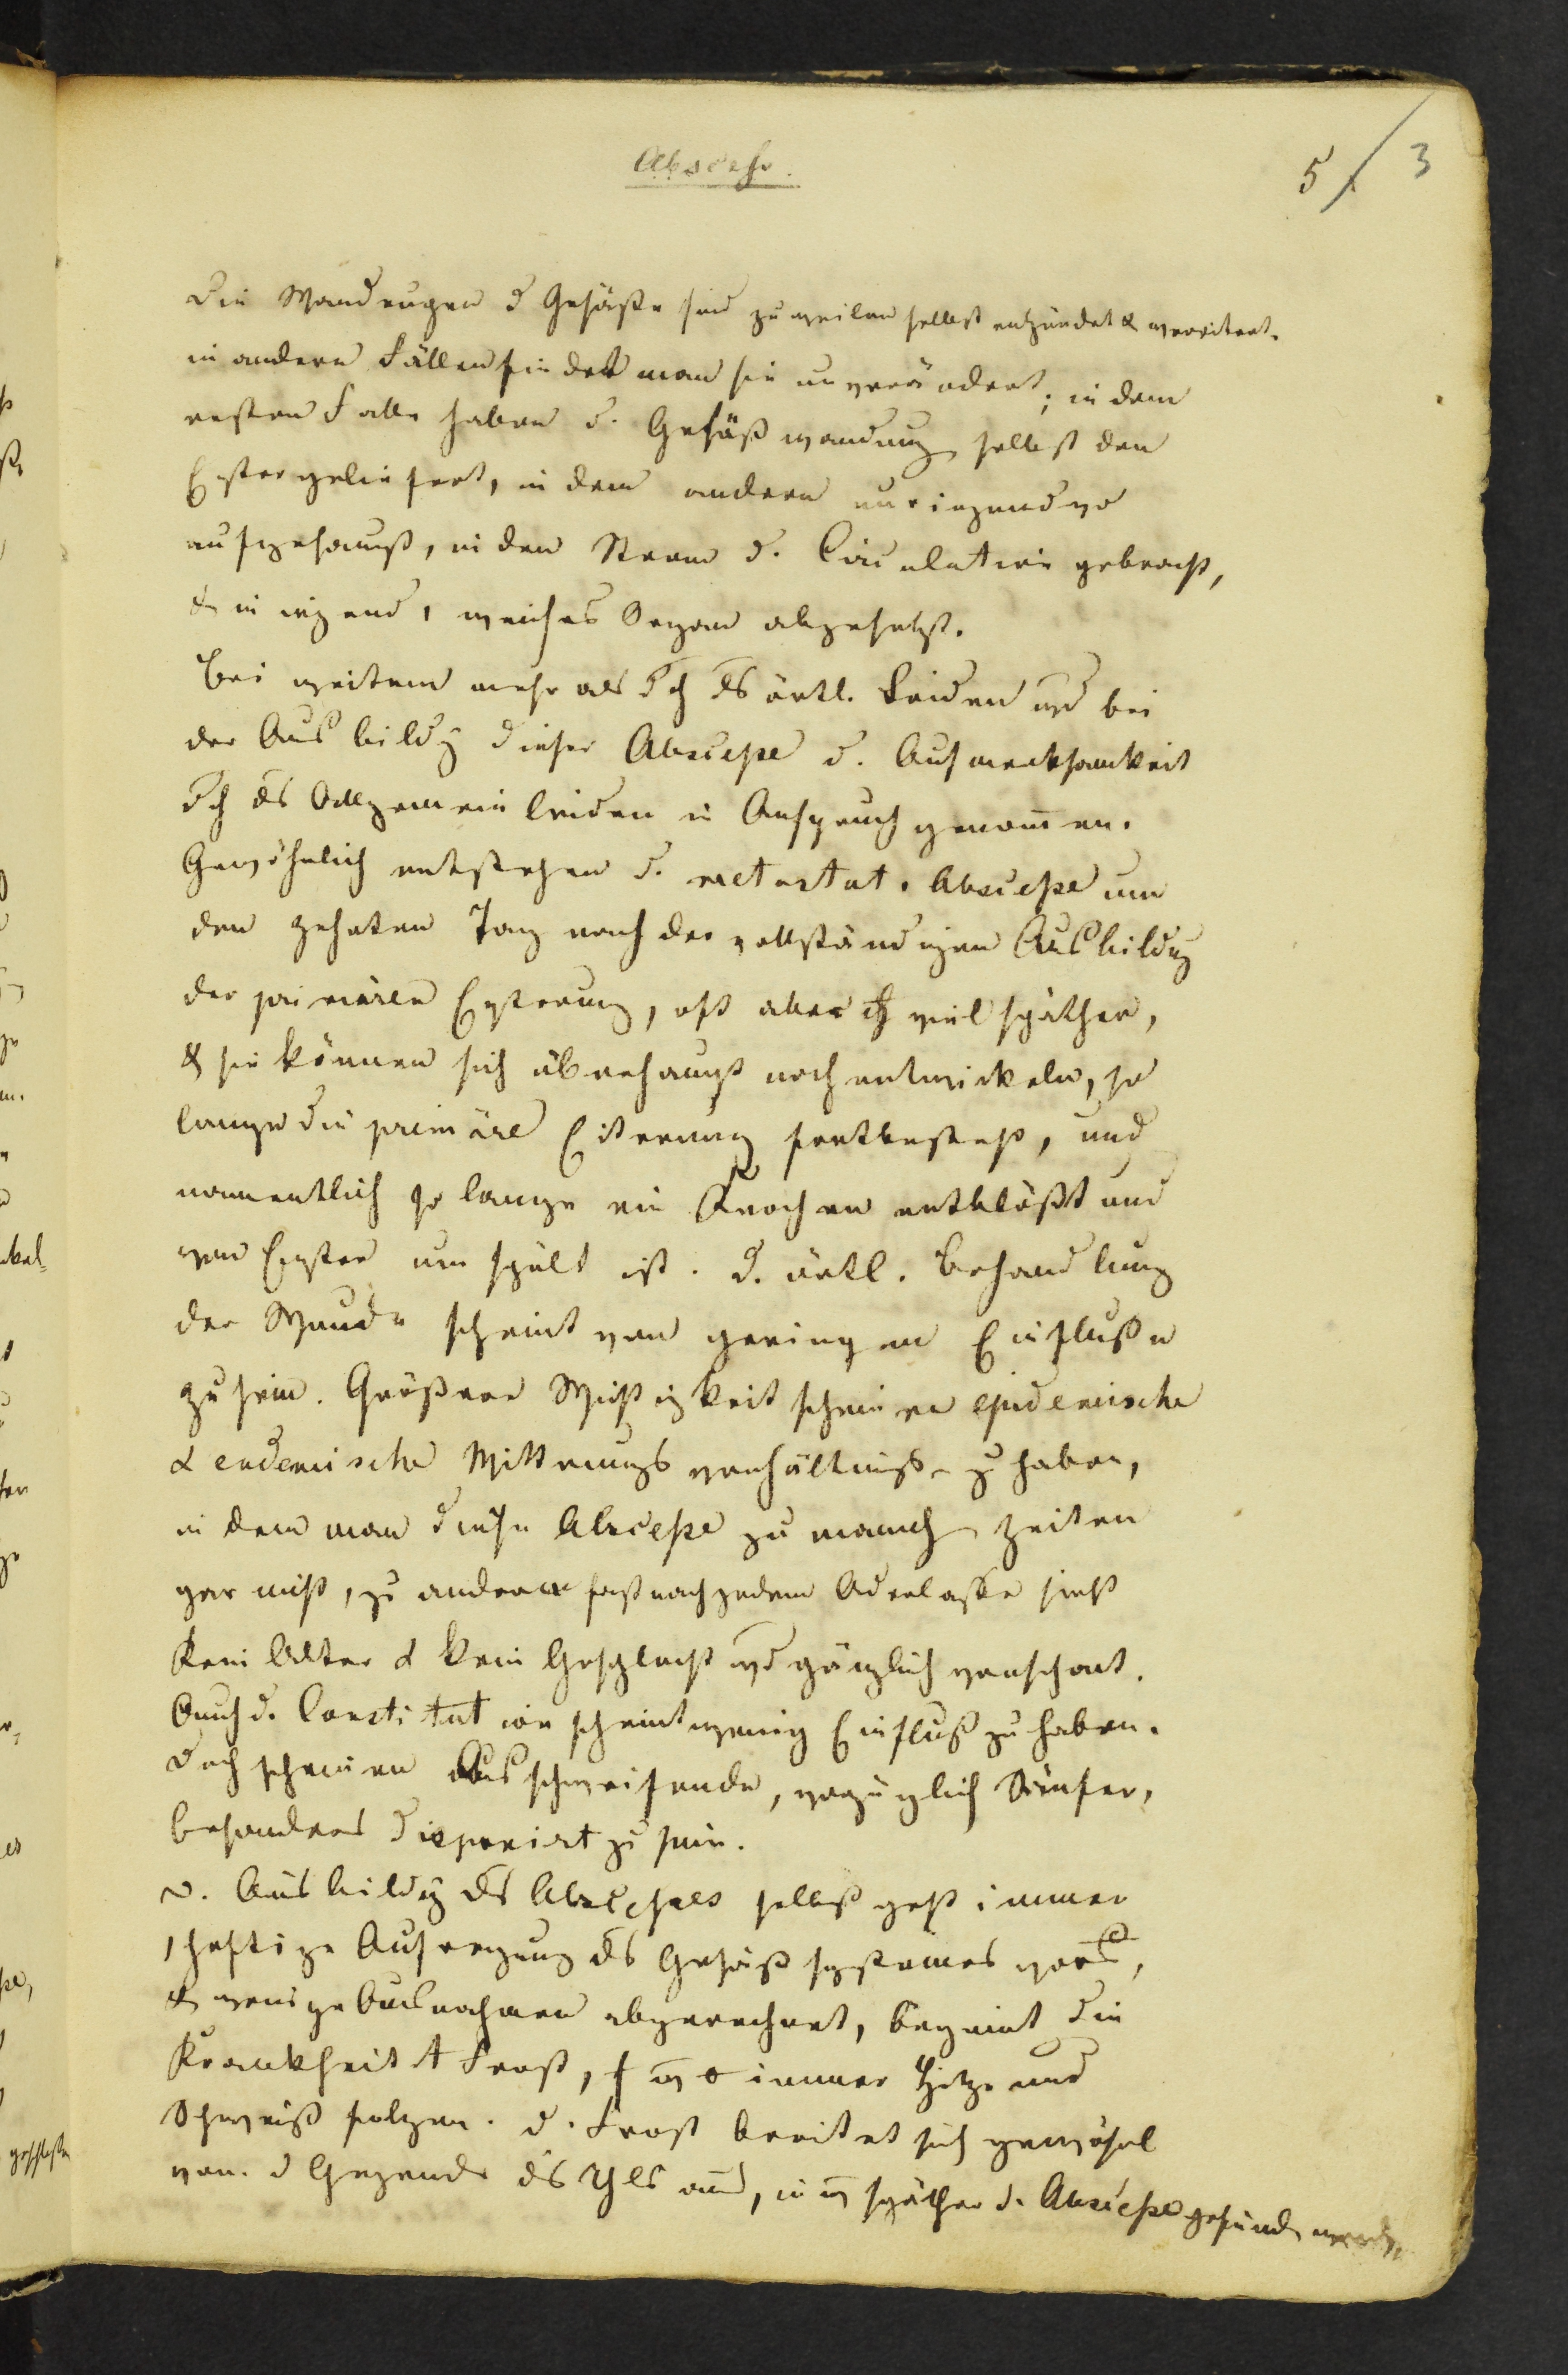 Abscesse.
5 / 3
Die Wandungen d Gefäße sind zuweilen selbst entzündet & vereitert.
in andern Fällen findet man sie unverändert; in dem
ersten Falle haben d. Gefäßwandung selbst den
Eyter geliefert, in dem andern nur irgendwo
aufgehäuft, in den Strom d. Circulation gebracht,
& in irgend 1 weiches Organ abgesetzt.
Bei weitem mehr als dch ds örtl. Leiden wd bei
der Ausbildg dieser Abscesse d. Aufmerksamkeit
dch ds Allgemeinleiden in Anspruch genommen.
Gewöhnlich entstehen d. metastat. Abscesse um
den zehnten Tag nach der vollständigen Ausbildg
der primären Eyterung, oft aber ch viel später,
& sie können sich überhaupt noch entwickeln, so
lange die primäre Eiterung fortbesteht, und
namentlich so lange ein Knochen entblößt und
von Eyter umspült ist. D. örtl. Behandlung
der Wunde scheint von geringem Einfluße
zu sein. Größere Wichtigkeit scheinen epidemische
& endemische Witterungsverhältniße zu haben,
in dem man diese Abscesse zu manch Zeiten
gar nicht, zu andern fast nach jedem Aderlasse sieht
Kein Alter & kein Geschlecht wd gänzlich verschont.
Auch d. Constitution scheint wenig Einfluß zu haben.
doch scheinen Ausschweifende, vorzüglich Säufer,
besonders disponirt zu sein.
D. Ausbildg ds Abscesses selbst geht immer
1 heftige Aufregung ds Gefäßsystemes voraus,
& wenige Ausnahmen abgerechnet, beginnt die
Krankheit Frost, immer Hitze und
Schweiß folgen. D. Frost breitet sich gewöhnl
von d Gegend ds aus, in später d. Abscesse gefunden werden,